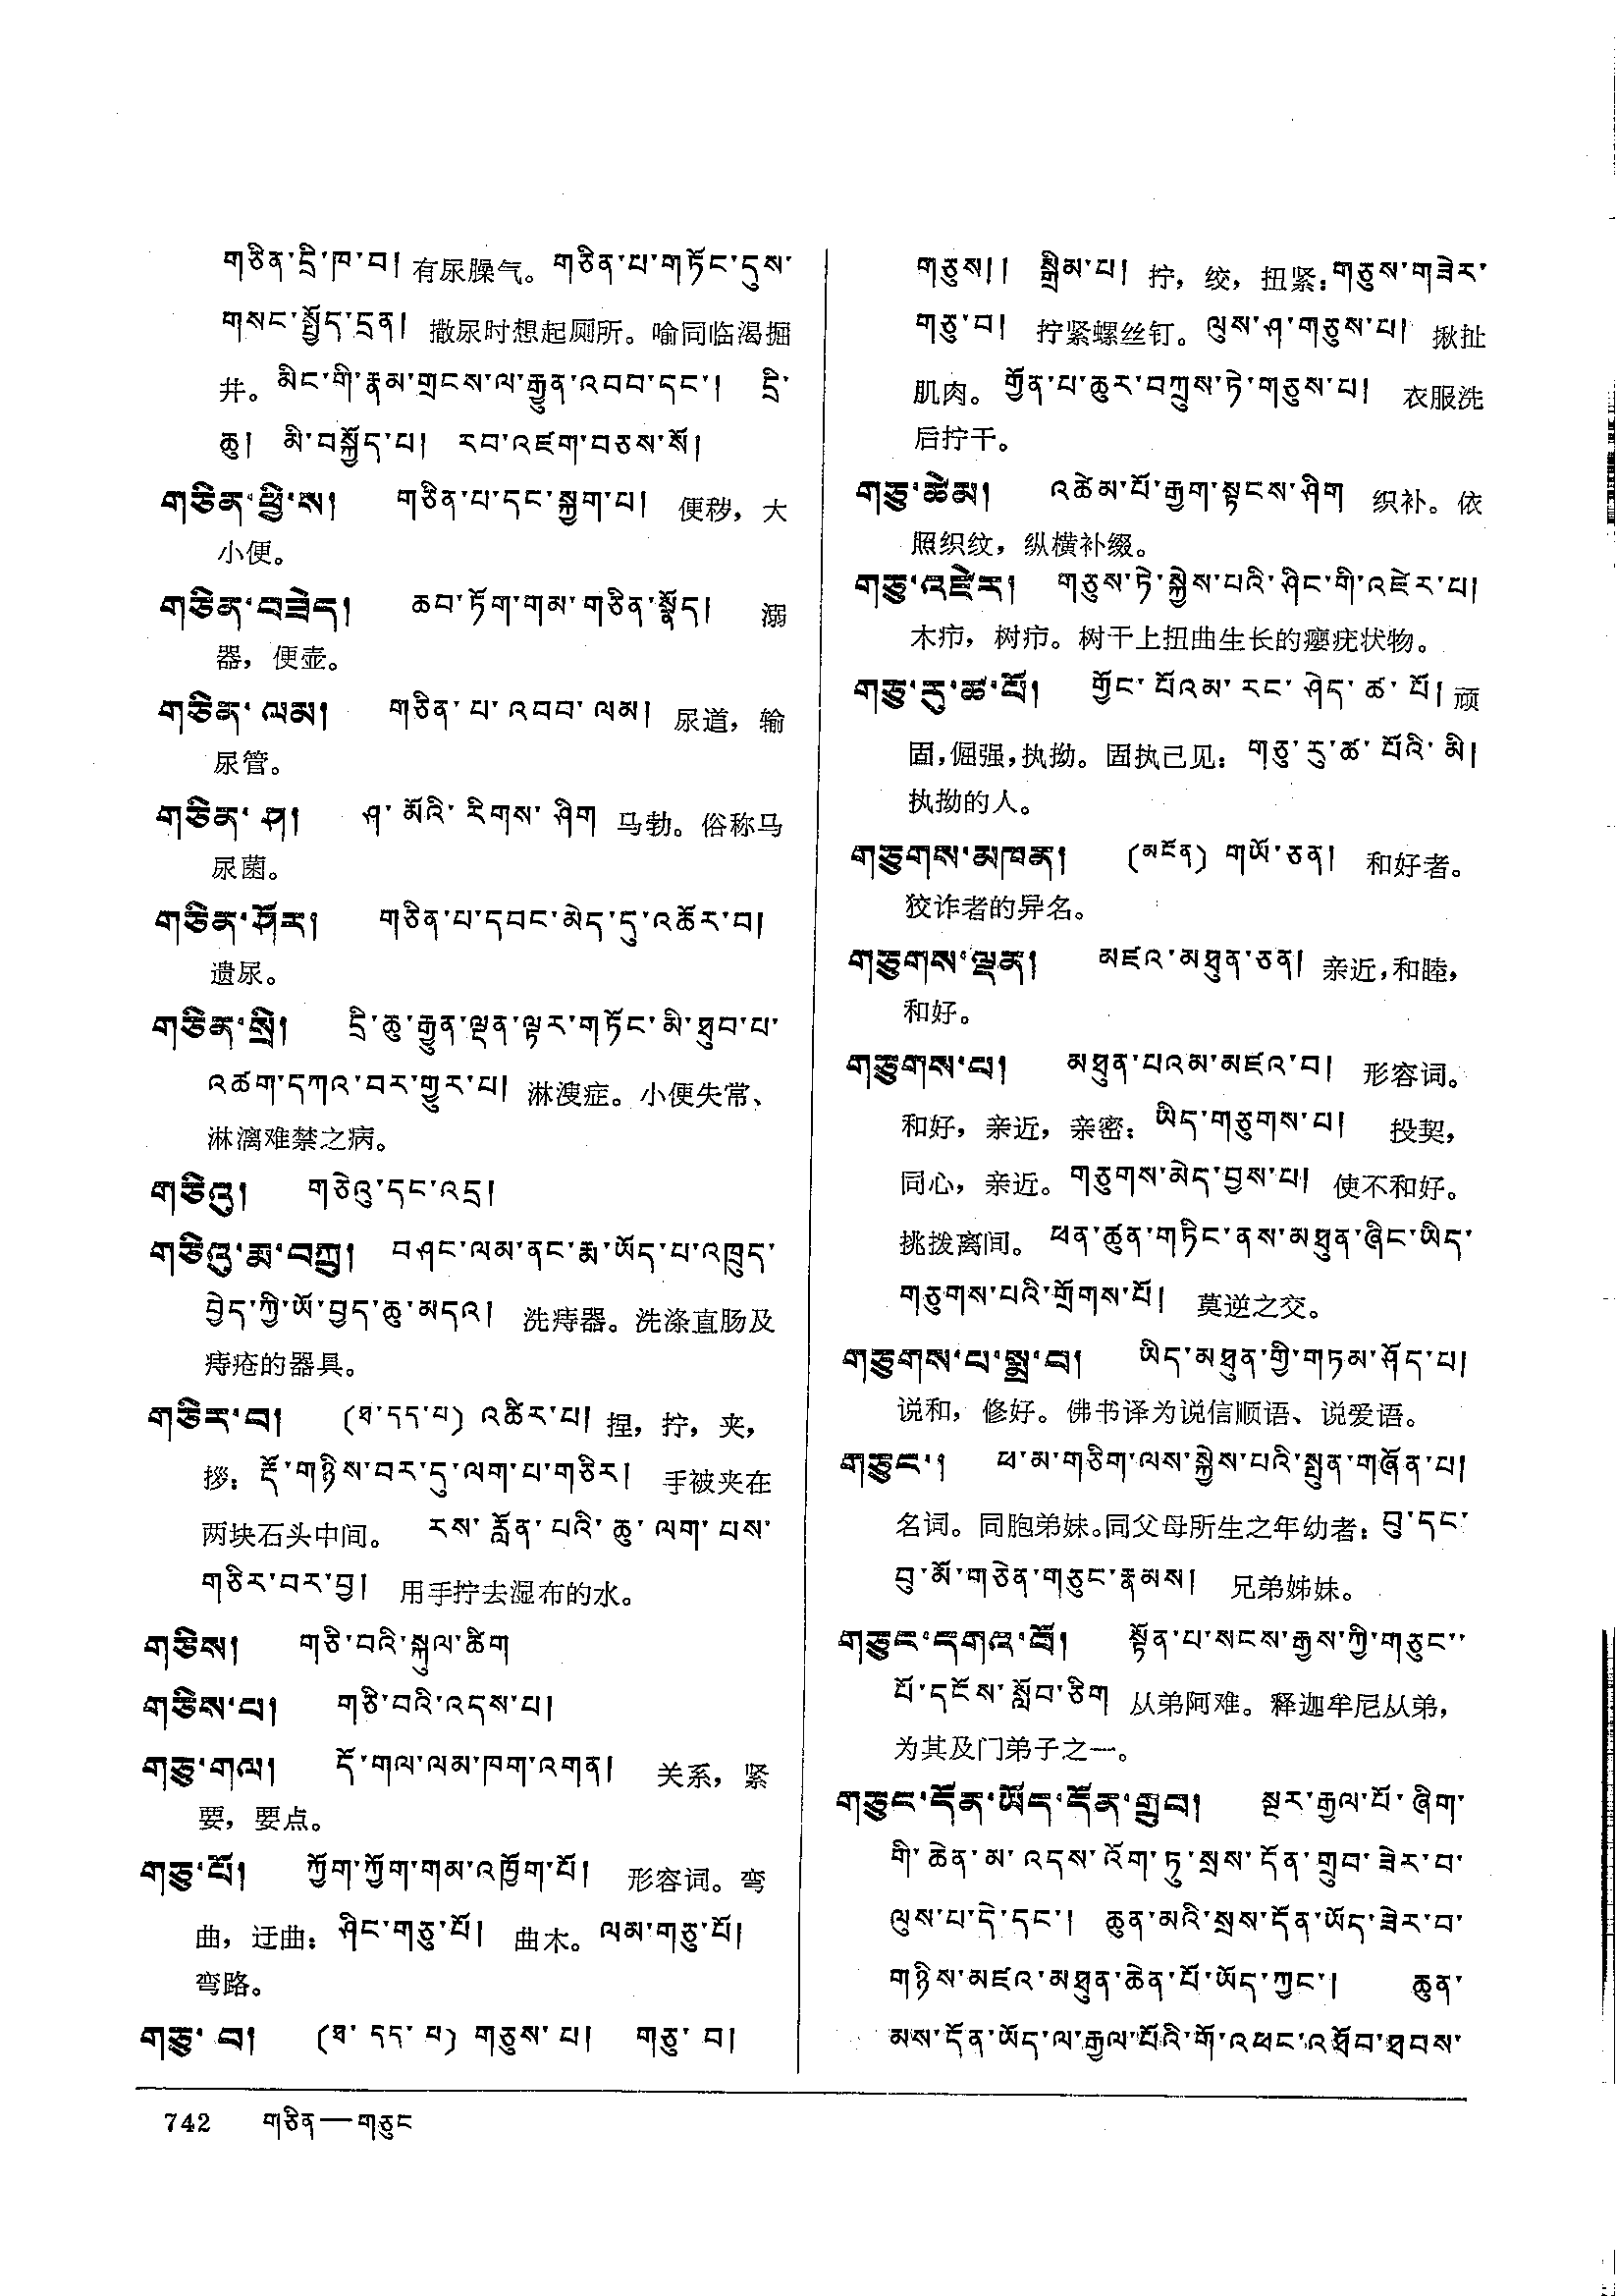 གཅིན་དྲི་ཁ་བ། 有尿臊气。 གཅིན་པ་གཏོང་དུས་
གསང་སྤྱོད་དྲན། 撒尿时想起厕所。喻同临渴掘
井。 མིང་གི་རྣམ་གྲངས་ལ་རྒྱུན་འབབ་དང་། དྲི་
ཆུ། མི་བསྐྱོད་པ། རབ་འཛག་བཅས་སོ།
གཅིན་ཕྱི་ས། གཅིན་པ་དང་སྐྱག་པ། 便秽，大
小便。
གཅིན་བཟེད། ཆབ་ཏོག་གམ་གཅིན་སྣོད། 溺
器，便壶。
གཅིན་ལམ། གཅིན་པ་འབབ་ལམ། 尿道，输
尿管。
གཅིན་ཤ། ཤ་མོའི་རིགས་ཤིག 马勃。俗称马
尿菌。
གཅིན་ཤོར། གཅིན་པ་དབང་མེད་དུ་འཆོར་བ།
遗尿。
གཅིན་སྲི། དྲི་ཆུ་རྒྱུན་ལྡན་ལྟར་གཏོང་མི་ཐུབ་པ་
འཚག་དཀའ་བར་གྱུར་པ། 淋溲症。小便失常、
淋漓难禁之病。
གཅིའུ། གཅེའུ་དང་འདྲ།
གཅིའུ་རྨ་བཀྲུ། བཤང་ལམ་ནང་རྨ་ཡོད་པ་འཁྲུད་
བྱེད་ཀྱི་ཡོ་བྱད་ཆུ་མདའ། 洗痔器。洗涤直肠及
痔疮的器具。
གཅིར་བ། (ཐ་དད་པ) འཚིར་པ། 捏，拧，夹，
拶： རྡོ་གཉིས་བར་དུ་ལག་པ་གཅིར། 手被夹在
两块石头中间。 རས་རློན་པའི་ཆུ་ལག་པས་
གཅིར་བར་བྱ། 用手拧去湿布的水。
གཅིས། གཅི་བའི་སྐུལ་ཚིག
གཅིས་པ། གཅི་བའི་འདས་པ།
གཅུ་གལ། དོ་གལ་ལམ་ཁག་འགན། 关系，紧
要，要点。
གཅུ་པོ། ཀྱོག་ཀྱོག་གམ་འཁྱོག་པོ། 形容词。弯
曲，迂曲： ཤིང་གཅུ་པོ། 曲木。 ལམ་གཅུ་པོ།
弯路。
གཅུ་བ། (ཐ་དད་པ) གཅུས་པ། གཅུ་བ།
གཅུས།། སྒྲིམ་པ། 拧，绞，扭紧： གཅུས་གཟེར་
གཅུ་བ། 拧紧螺丝钉。 ལུས་ཤ་གཅུས་པ། 揪扯
肌肉。 གྱོན་པ་ཆུར་བཀྲུས་ཏེ་གཅུས་པ། 衣服洗
后拧干。
གཅུ་ཚེམ། འཚེམ་པོ་རྒྱག་སྟངས་ཤིག 织补。依
照织纹，纵横补缀。
གཅུ་འཛེར། གཅུས་ཏེ་སྐྱེས་པའི་ཤིང་གི་འཛེར་པ།
木疖，树疖。树干上扭曲生长的瘿疣状物。
གཅུ་རུ་ཚ་པོ། གྱོང་པོའམ་རང་ཤེད་ཚ་པོ། 顽
固，倔强，执拗。固执己见： གཅུ་རུ་ཚ་པོའི་མི།
执拗的人。
གཅུགས་མཁན། (མངོན) གཡོ་ཅན། 和好者。
狡诈者的异名。
གཅུགས་ལྡན། མཛའ་མཐུན་ཅན། 亲近，和睦，
和好。
གཅུགས་པ། མཐུན་པའམ་མཛའ་བ། 形容词。
和好，亲近，亲密： ཡིད་གཅུགས་པ། 投契，
同心，亲近。 གཅུགས་མེད་བྱས་པ། 使不和好。
挑拨离间。 ཕན་ཚུན་གཏིང་ནས་མཐུན་ཞིང་ཡིད་
གཅུགས་པའི་གྲོགས་པོ། 莫逆之交。
གཅུགས་པ་སྨྲ་བ། ཡིད་མཐུན་གྱི་གཏམ་ཤོད་པ།
说和，修好。佛书译为说信顺语、说爱语。
གཅུང་། ཕ་མ་གཅིག་ལས་སྐྱེས་པའི་སྤུན་གཞོན་པ།
名词。同胞弟妹。同父母所生之年幼者： བུ་དང་
བུ་མོ་གཅེན་གཅུང་རྣམས། 兄弟姊妹。
གཅུང་དགའ་བོ། སྟོན་པ་སངས་རྒྱས་ཀྱི་གཅུང་་
པོ་དངོས་སློབ་ཅིག 从弟阿难。释迦牟尼从弟，
为其及门弟子之一。
གཅུང་དོན་ཡོད་དོན་གྲུབ། སྔར་རྒྱལ་པོ་ཞིག་
གི་ཆེན་མ་འདས་འོག་ཏུ་སྲས་དོན་གྲུབ་ཟེར་བ་
ལུས་པ་དེ་དང་། ཆུན་མའི་སྲས་དོན་ཡོད་ཟེར་བ་
གཉིས་མཛའ་མཐུན་ཆེན་པོ་ཡོད་ཀྱང་། ཆུན་
མས་དོན་ཡོད་ལ་རྒྱལ་པོའི་གོ་འཕང་འཐོབ་ཐབས་
742 གཅིན—གཅུང